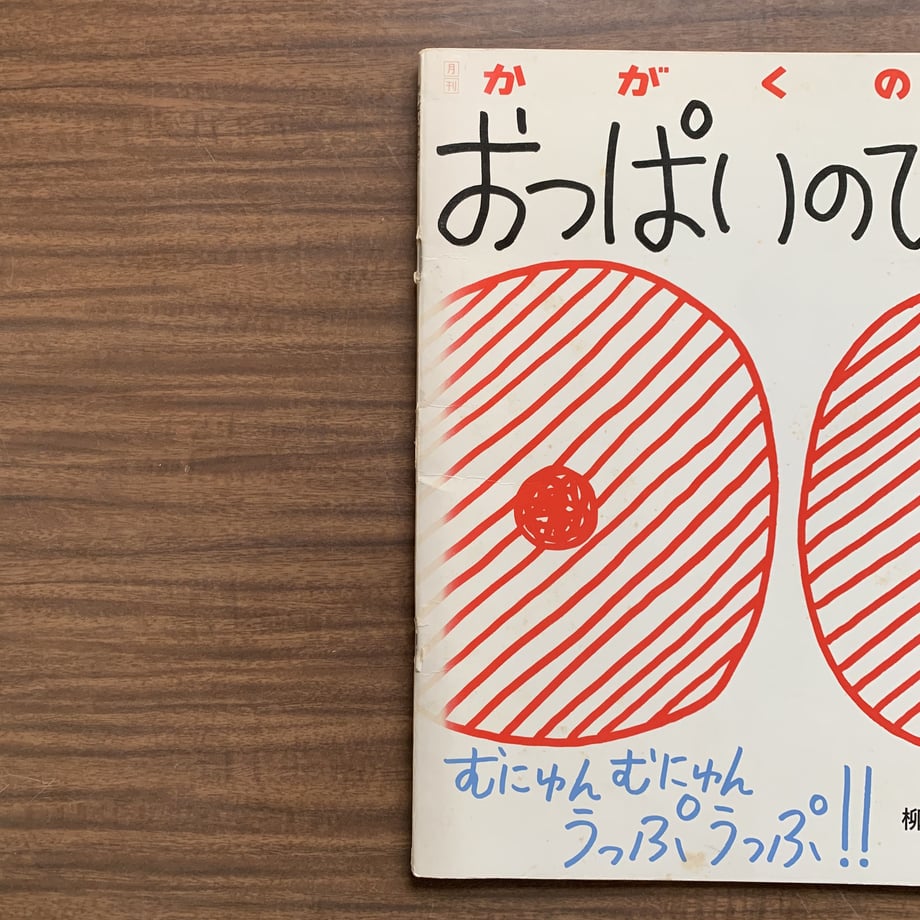 月刊
かがくの
おっぱいのひ
むにゅんむにゅん
うっぷうっぷ!!
柳